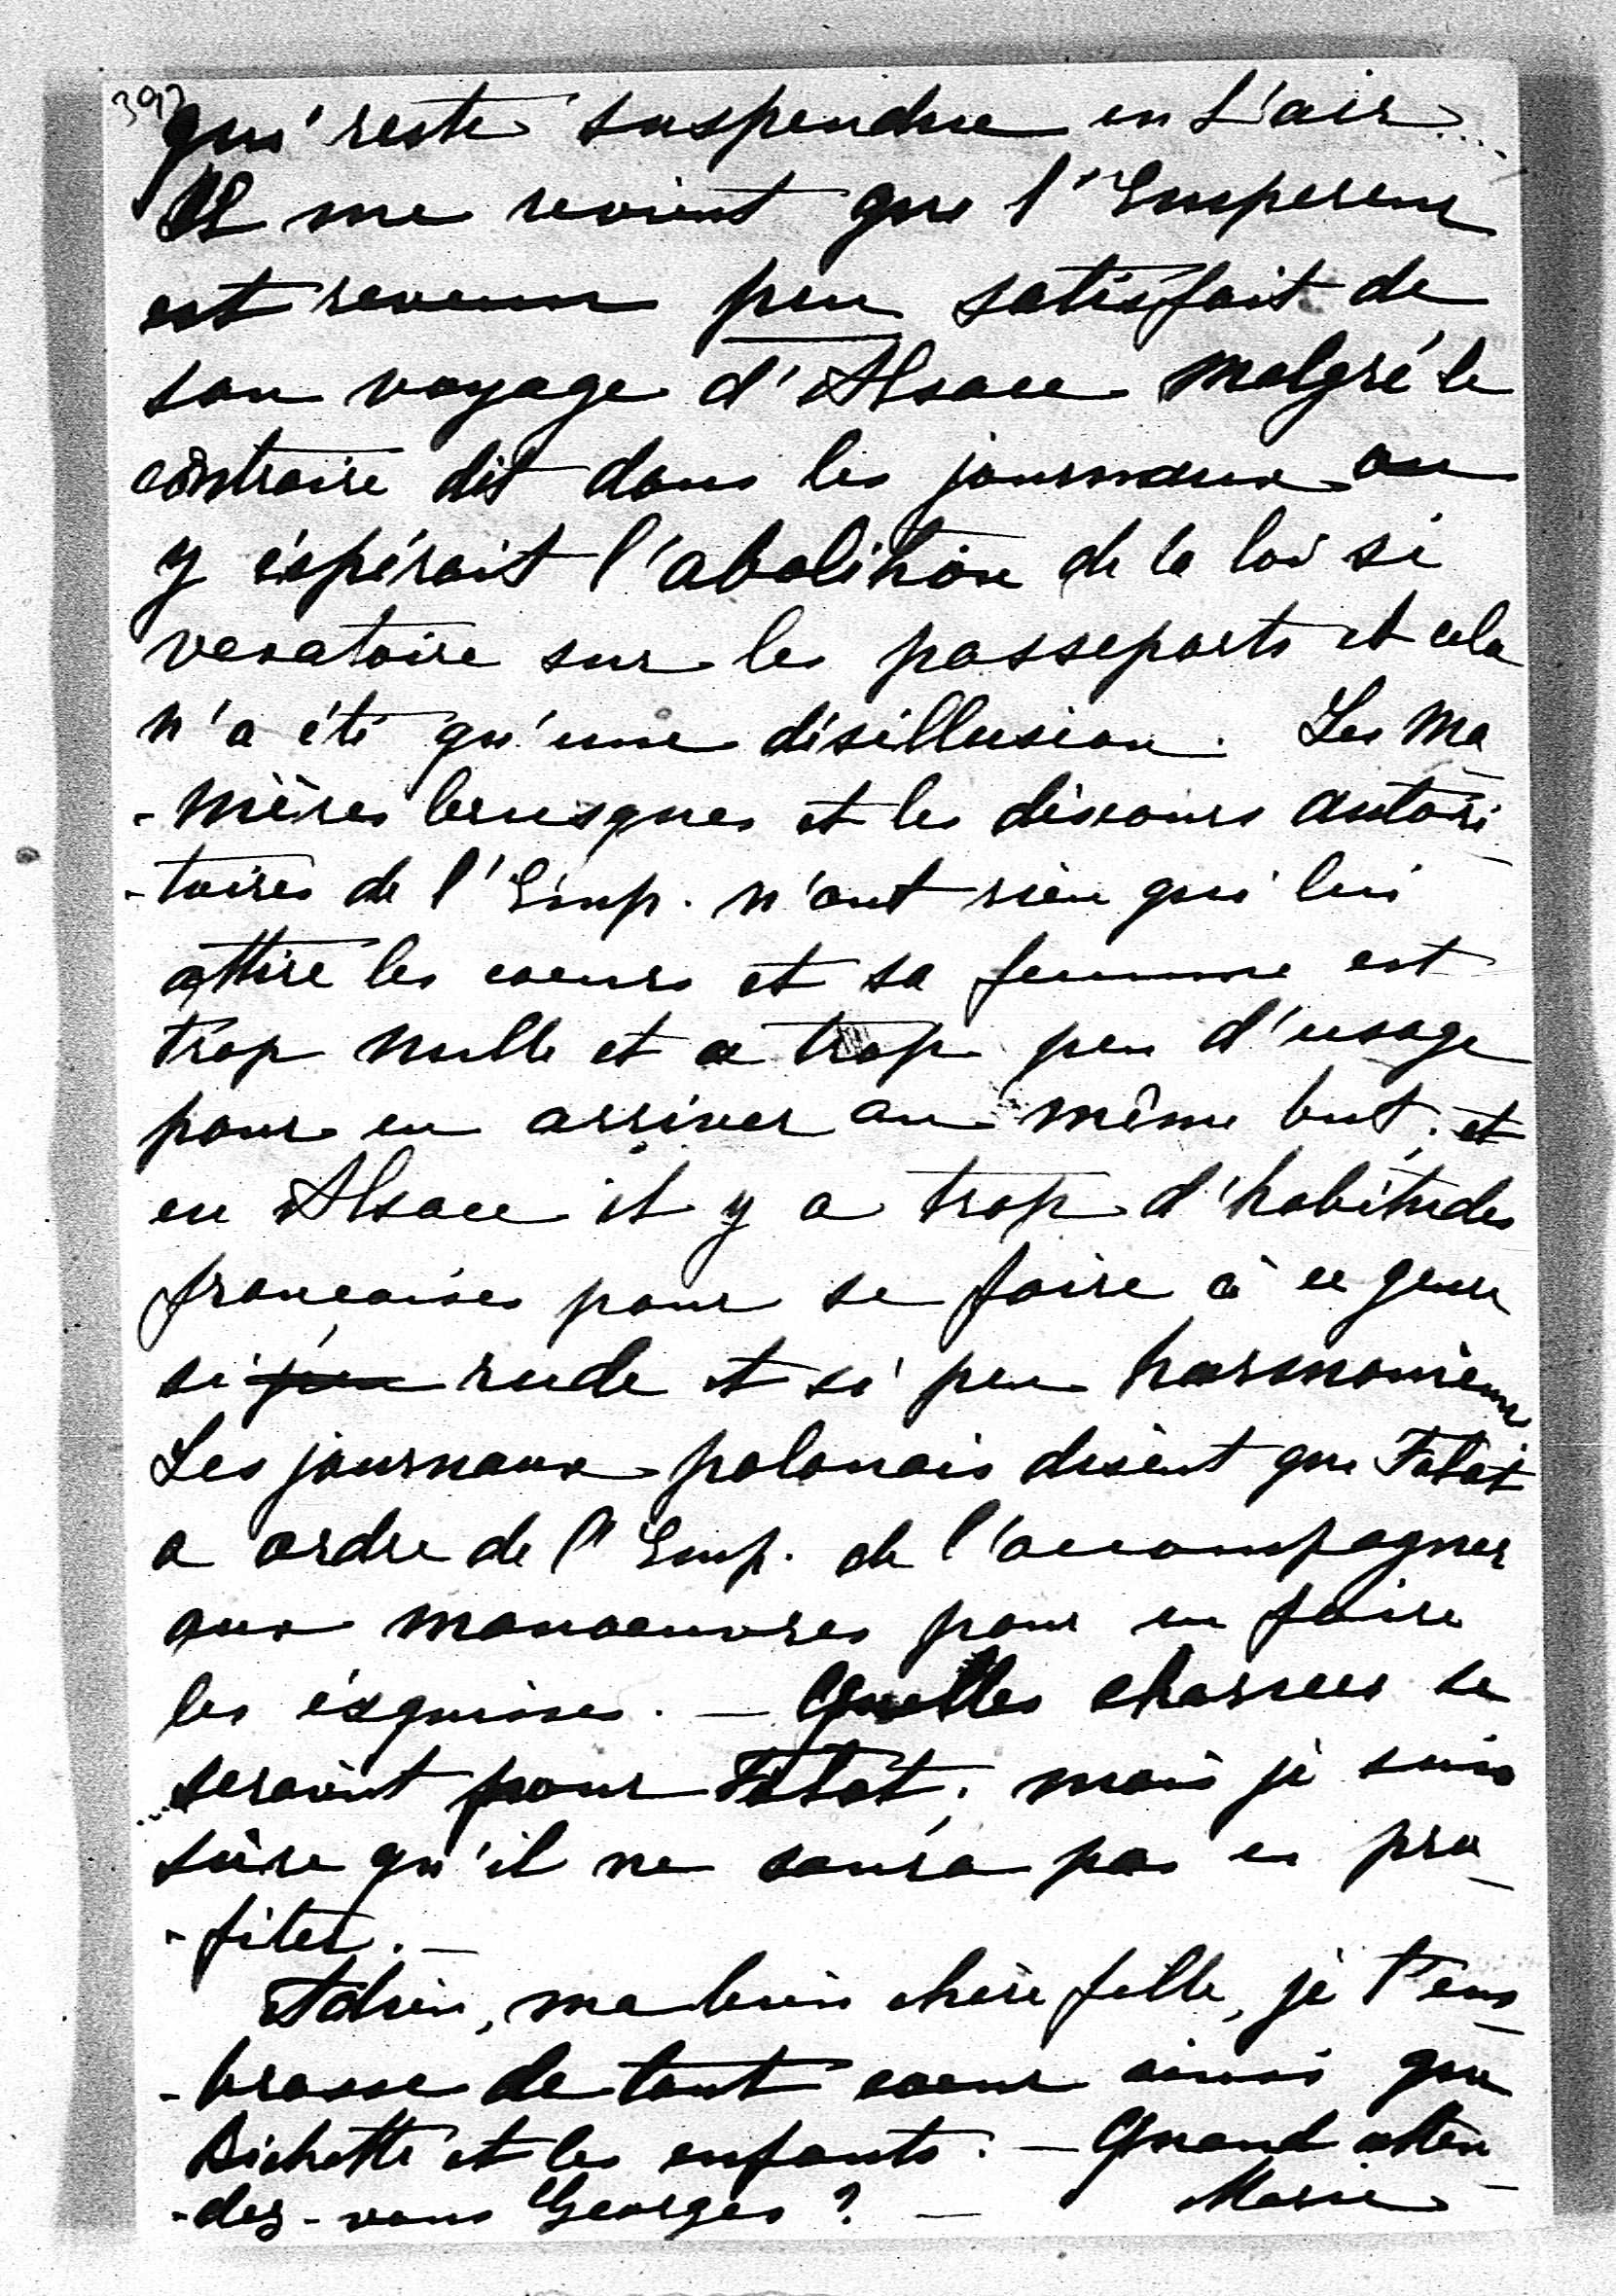 392
qui reste suspendue en l'air...
Il me revient que l'Empereur
est revenu peu satisfait de
son voyage d'Alsace malgré le
contraire dit dans les journaux on
y éspérait l'abolition de la loi si
vexatoire sur les passeports et cela
n'a été qu'une désillusion. Les ma
-nières brusques et les discours autori
-taires de l'Emp. n'ont rien qui lui
attire les coeurs et sa femme est
trop nulle et a trop peu d'usage
pour en arriver au même but, et
en Alsace il y a trop d'habitudes
françaises pour se faire à ce genre
si peu rude et si peu harmonieux
Les journaux polonais disent que Falat
a ordre de l'Emp. de l'accompagner
aux manoeuvres pour en faire
les ésquisses. — Quelles chances ce
seraient pour Falat, mais je suis
sûre qu'il ne saura pas en pro
-fiter. —
Adieu, ma bien chère fille, je t'em
-brasse de tout coeur ainsi que
Bichette et les enfants. — Quand atten
-dez-vous Georges ? — Marie